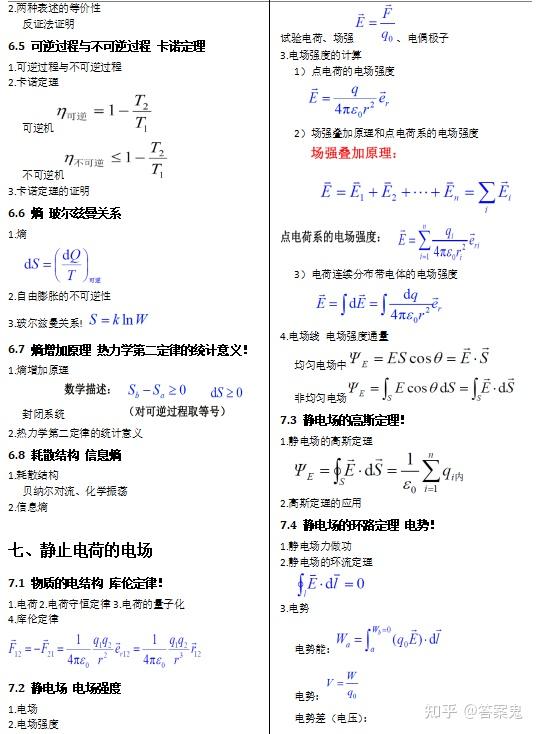 2.两种表述的等价性
反证法证明
6.5 可逆过程与不可逆过程 卡诺定理
1.可逆过程与不可逆过程
2.卡诺定理
可逆机 η可逆 = 1 − T₂/T₁
不可逆机 η不可逆 ≤ 1 − T₂/T₁
3.卡诺定理的证明
6.6 熵 玻尔兹曼关系
1.熵
dS = (dQ/T)可逆
2.自由膨胀的不可逆性
3.玻尔兹曼关系! S = k ln W
6.7 熵增加原理 热力学第二定律的统计意义!
1.熵增加原理
数学描述: S_b − S_a ≥ 0 dS ≥ 0
封闭系统 (对可逆过程取等号)
2.热力学第二定律的统计意义
6.8 耗散结构 信息熵
1.耗散结构
贝纳尔对流、化学振荡
2.信息熵
七、静止电荷的电场
7.1 物质的电结构 库伦定律!
1.电荷2.电荷守恒定律 3.电荷的量子化
4.库伦定律
F⃗₁₂ = −F⃗₂₁ = 1/(4πε₀) q₁q₂/r² e⃗r12 = 1/(4πε₀) q₁q₂/r³ r⃗₁₂
7.2 静电场 电场强度
1.电场
2.电场强度
试验电荷、场强 E⃗ = F⃗/q₀ 、电偶极子
3.电场强度的计算
1）点电荷的电场强度
E⃗ = q/(4πε₀r²) e⃗r
2）场强叠加原理和点电荷系的电场强度
场强叠加原理:
E⃗ = E⃗₁ + E⃗₂ + ⋯ + E⃗n = ∑i E⃗i
点电荷系的电场强度: E⃗ = ∑(i=1→n) qi/(4πε₀ri²) e⃗ri
3）电荷连续分布带电体的电场强度
E⃗ = ∫dE⃗ = ∫ dq/(4πε₀r²) e⃗r
4.电场线 电场强度通量
均匀电场中 Ψ_E = ES cosθ = E⃗ · S⃗
非均匀电场 Ψ_E = ∫_S E cosθ dS = ∫_S E⃗ · dS⃗
7.3 静电场的高斯定理!
1.静电场的高斯定理
Ψ_E = ∮_S E⃗ · dS⃗ = 1/ε₀ ∑(i=1→n) qi内
2.高斯定理的应用
7.4 静电场的环路定理 电势!
1.静电场力做功
2.静电场的环流定理
∮_l E⃗ · dl⃗ = 0
3.电势
电势能: W_a = ∫_a^(W_b=0) (q₀E⃗) · dl⃗
电势: V = W/q₀
电势差（电压）:
知乎 @答案鬼